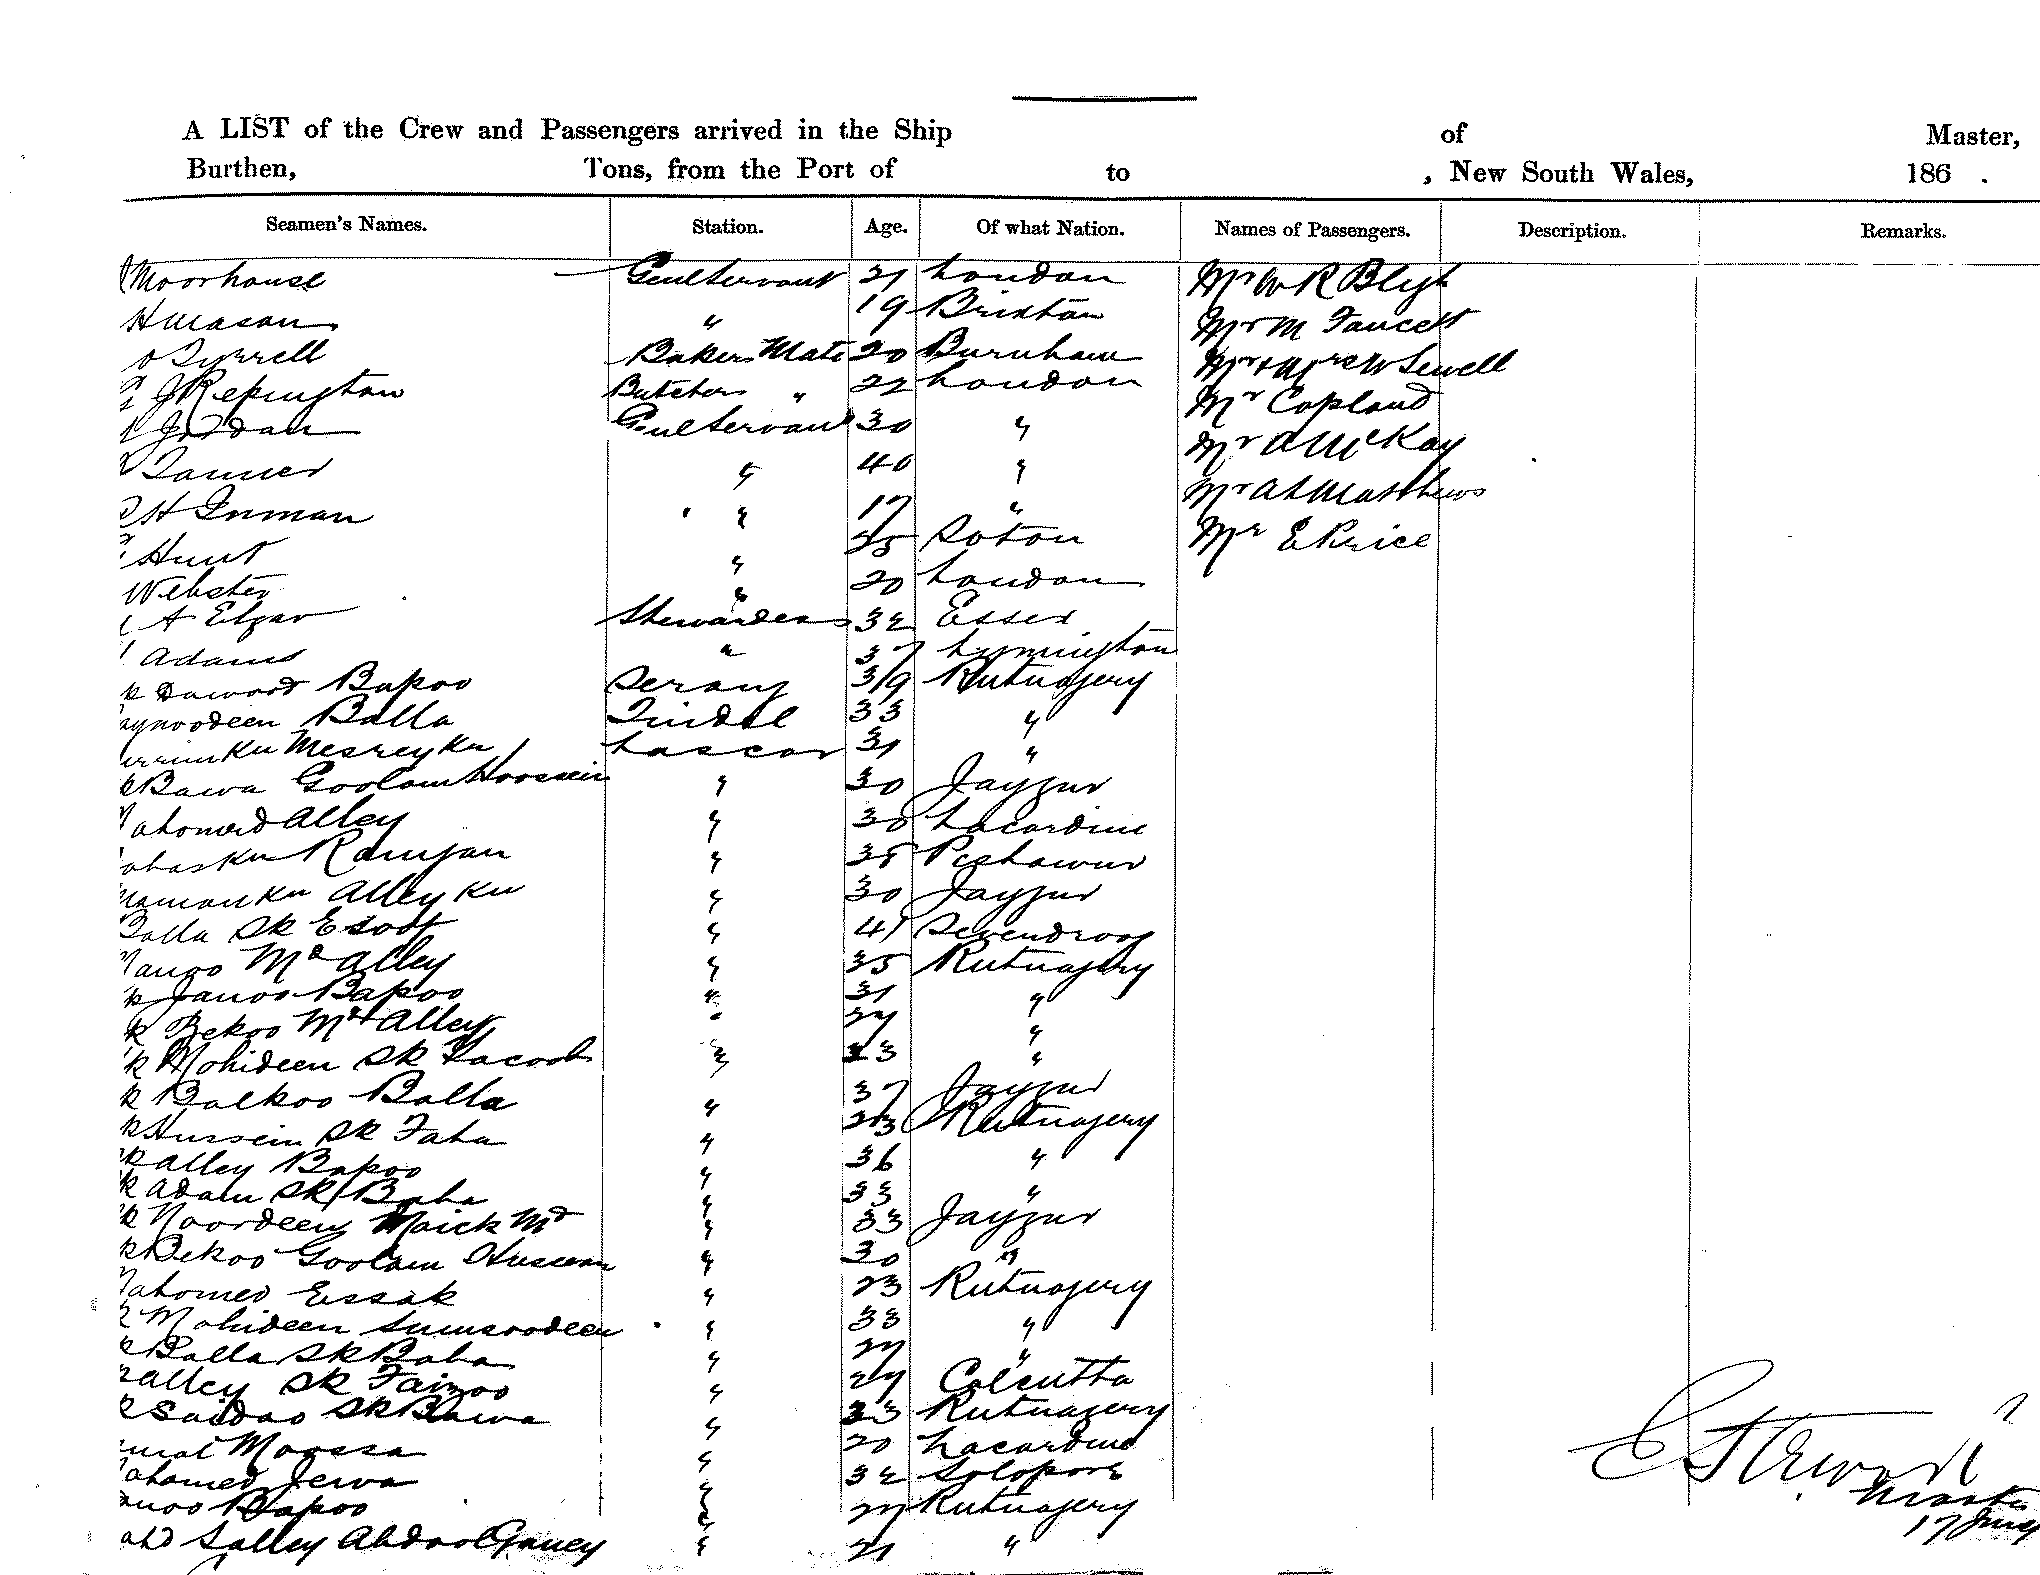 A LIST of the Crew and Passengers arrived in the Ship of Master,
Burthen, Tons, from the Port of to , New South Wales, 186 .
Seamen's Names. Station. Age. Of what Nation. Names of Passengers. Description. Remarks.
Moorhouse Genl Servant 21 London Mr W R Bligh
H Mason " 19 Brixton Mr M Faucett
Tyrrell Bakers Mate 20 Burnham Mr & Mrs W Sewell
J Repington Butchers " 22 London Mr Copland
Jordan Genl Servant 30 " Mr A McKay
Tanner " 40 " Mr A L Matthews
H Inman " 17 " Mr E Price
Hunt " 25 Soton
Webster " 20 London
A Elgar Stewardess 32 Essex
Adams " 37 Lymington
Dawood Bapoo Serang 39 Rutnagery
Balla Tindal 33 "
Mesreyku Lascar 31 "
Bawa Goolam Hoossein " 30 Jaygur
Alley " 30 Lacardine
Ramjan " 35 Peshawur
Alley Ku " 30 Jaygur
Balla Sk Esoof " 41 Sevendroog
Md Alley " 35 Rutnagery
Janoo Bapoo " 31 "
Bekoo Md Alley " 27 "
Mohideen Sk Yacoob " 23 "
Balkoo Balla " 37 Jaygur
Hussein Sk Taha " 23 Rutnagery
Alley Bapoo " 36 "
Adam Sk Baba " 33 "
Noordeen Maick Md " 33 Jaygur
Bekoo Goolam Husseen " 30 "
Mahomed Essak " 23 Rutnagery
Mohideen Sumsoodeen " 33 "
Balla Sk Baba " 27 "
Alley Sk Faizoo " 27 Calcutta
Saidoo Sk Bawa " 33 Rutnagery
Moossa " 20 Lacardine
Mahomed Jewa " 32 Solopore
Bapoo " 27 Rutnagery
Salley Abdool Ganey " 21 "
Master
17